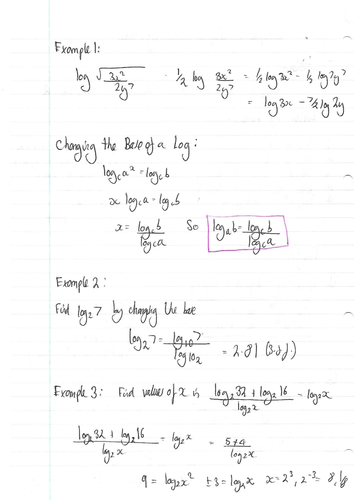 Example 1:
log √(3x²/2y⁷)   ½ log 3x²/2y⁷ = ½ log 3x² - ½ log 2y⁷
= log 3x - 7/2 log 2y
Changing the Base of a Log:
log_c a^x = log_c b
x log_c a = log_c b
x = log_c b / log_c a   So   log_a b = log_c b / log_c a
Example 2:
Find log₂7 by changing the base
log₂7 = log₁₀7 / log₁₀2 = 2.81 (3.s.f.)
Example 3: Find values of x is (log₂32 + log₂16) / log₂x = log₂x
(log₂32 + log₂16) / log₂x = log₂x   = (5+4) / log₂x
9 = log₂x²   ±3 = log₂x   x = 2³, 2⁻³ = 8, 1/8